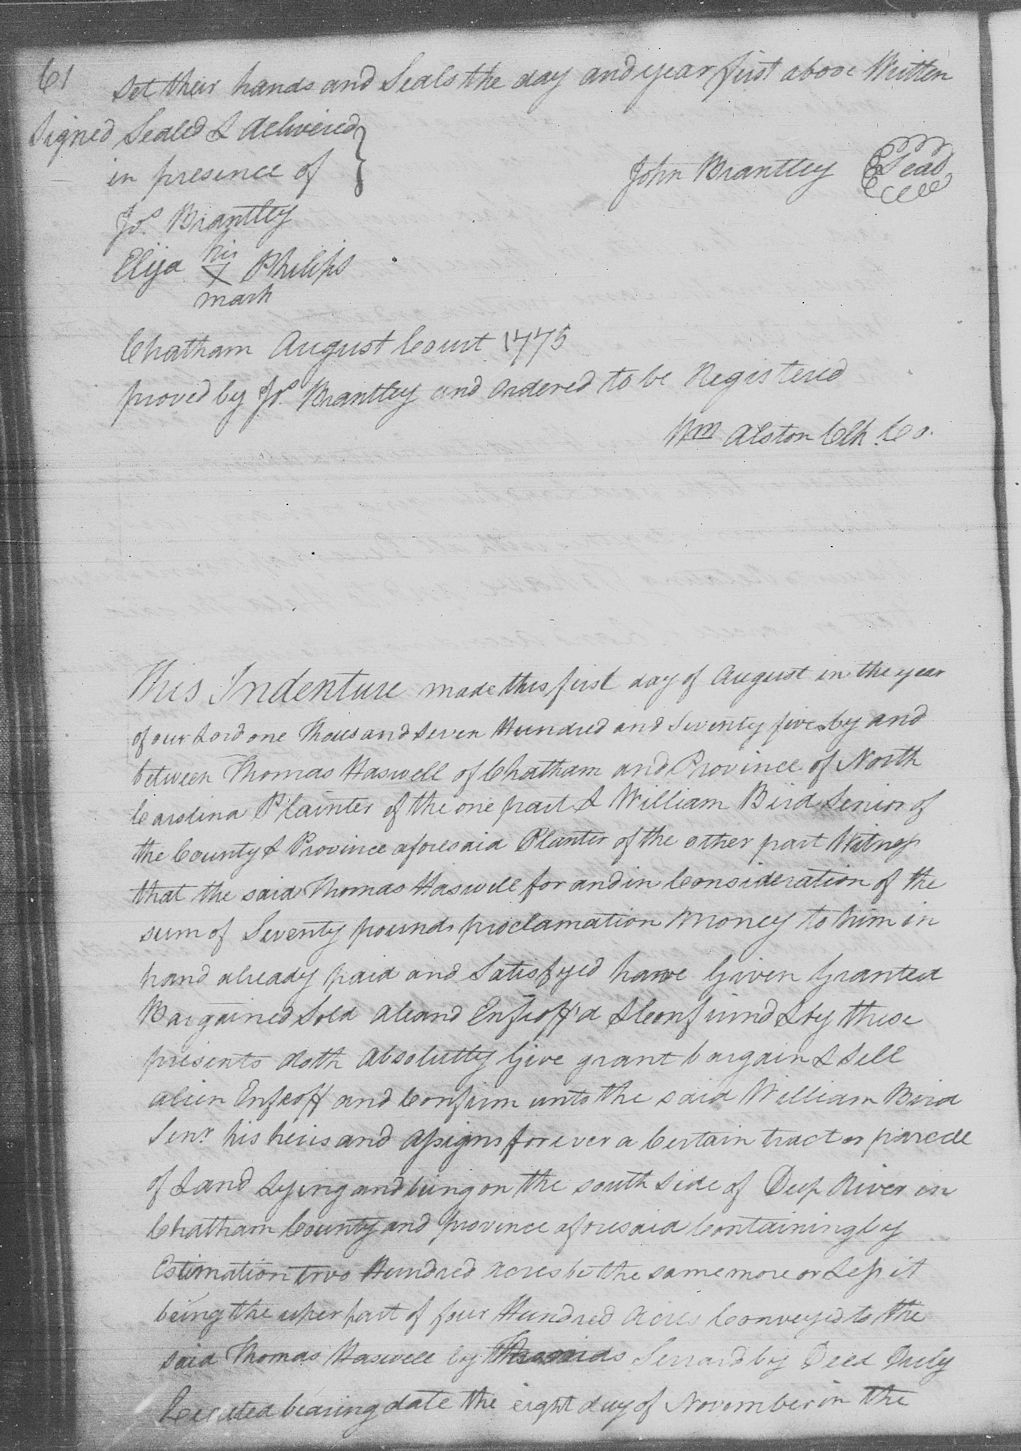 61
Set their hands and Seals the day and year first above Written
Signed Sealed & delivered
in presence of
John Brantley Seal
Jos. Brantley
Elija his X mark Philips
Chatham August Court 1775
proved by Jos. Brantley and ordered to be Registered
Wm Alston Clk Co.
This Indenture made this first day of August in the year
of our Lord one Thousand Seven Hundred and Seventy five by and
between Thomas Haswell of Chatham and Province of North
Carolina Plainter of the one part & William Bird Senior of
the County & Province aforesaid Planter of the other part Witness
that the said Thomas Haswell for and in Consideration of the
sum of Seventy pounds proclamation Money to him in
hand already paid and Satisfyed have Given Granted
Bargained Sold aliand Enfeoff'd & Confirmd & by these
presents doth absolutly Give grant bargain & Sell
alien Enfeoff and Confirm unto the said William Bird
Senr his heirs and assigns forever a Certain tract or parcell
of Land Lying and being on the south side of Deep River in
Chatham County and province aforesaid Containing by
Estimation two Hundred acres be the same more or Less it
being the uper part of four Hundred acres Conveyed to the
said Thomas Haswell by Serrard by Deed Duly
Excuted bearing date the eight day of November in the